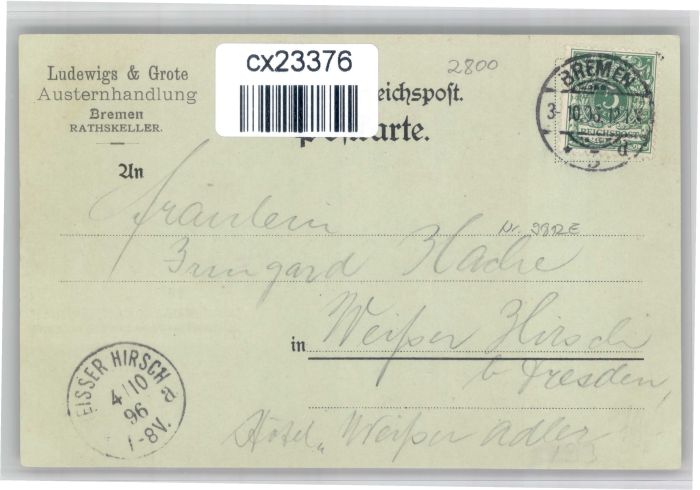 Ludewigs & Grote
Austernhandlung
Bremen
RATHSKELLER.
cx23376
2800
eichspost.
Postkarte.
BREMEN
3 10.96
d
5
REICHSPOST
An
Fräulein
Nr. 2812E
Irmgard Hache
in Weißer Hirsch
b. Dresden
Hôtel „Weißer Adler
EISSER HIRSCH
4/10
a
96
7-8V.